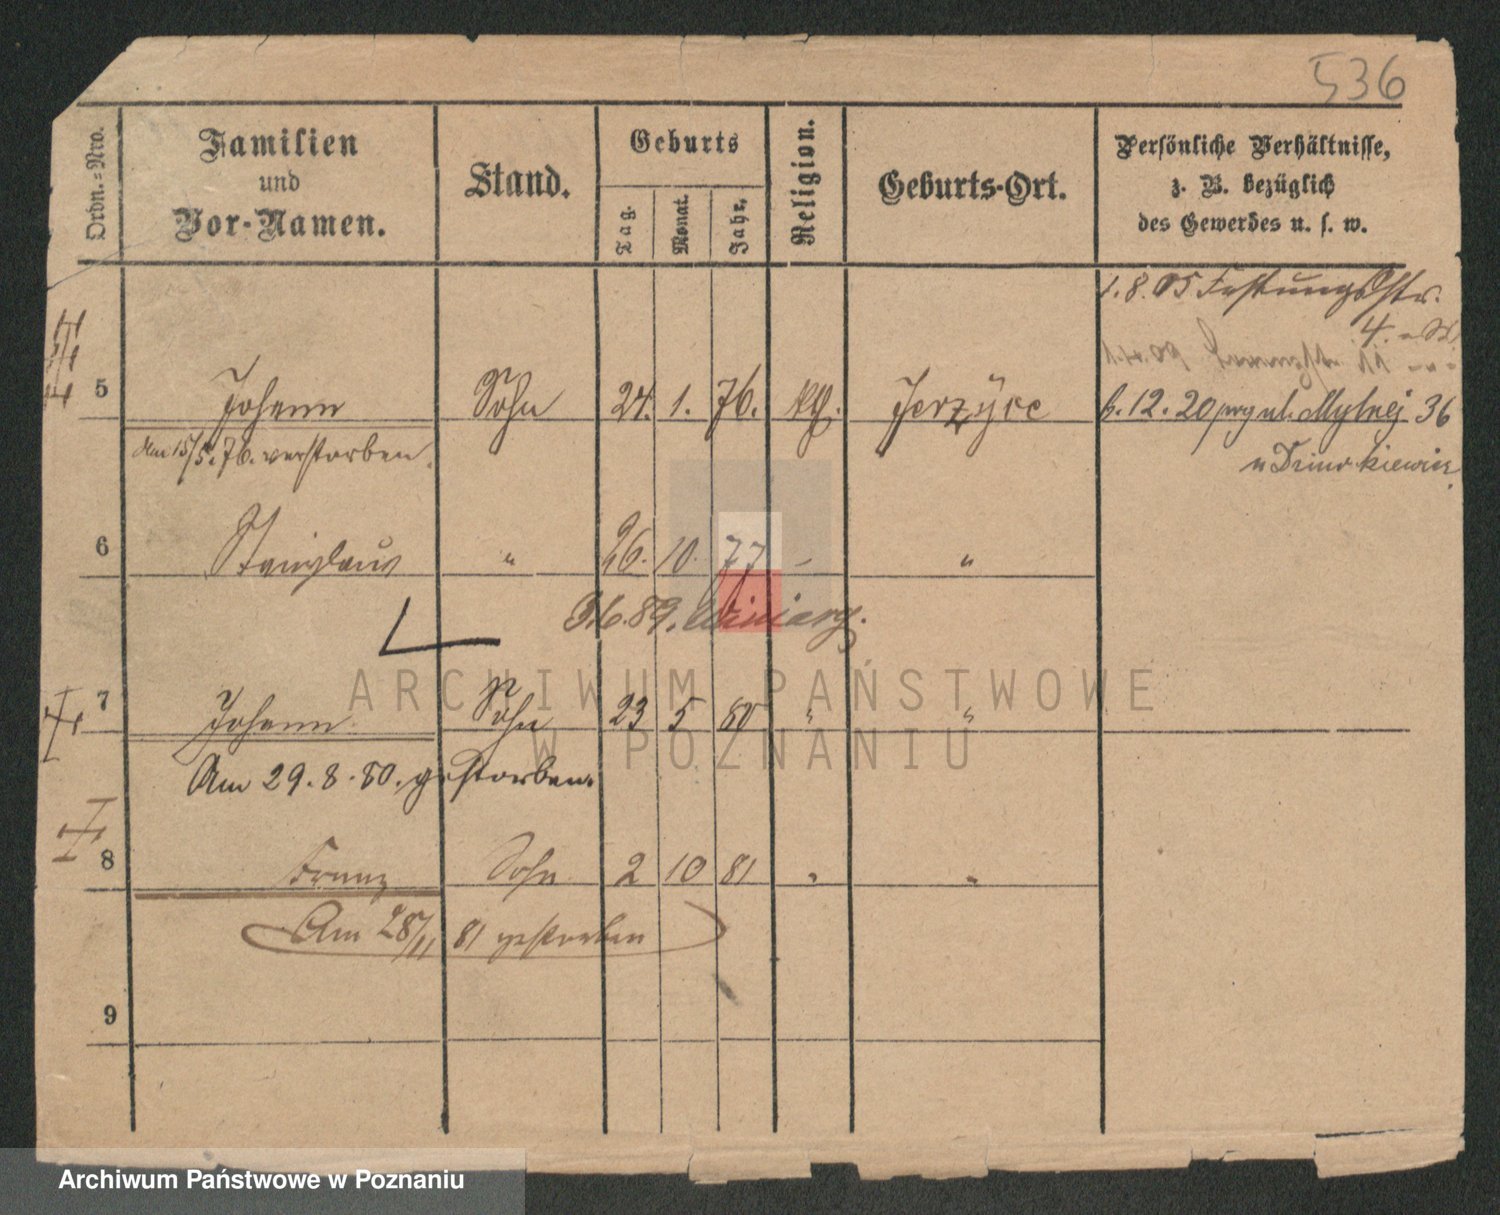 536
Ordn.-Nro.
Familien
und
Vor-Namen.
Stand.
Geburts
Tag.
Monat.
Jahr.
Religion.
Geburts-Ort.
Persönliche Verhältnisse,
z. B. bezüglich
des Gewerbes u. s. w.
1.8.05 Festungsstr.
4.
5 Johann Sohn 24. 1. 76. kth. Jerzyce
6.12.20 przy ul. Mylnej 36
Am 15/5.76. verstorben.
u
6 Stanislaus " 26. 10. 77 – "
89. Winiary.
7 Johann Sohn 23 5 80 " "
Am 29.8.80. gestorben.
8 Franz Sohn 2 10 81 " "
Am 28/11 81 gestorben
9
ARCHIWUM PAŃSTWOWE
W POZNANIU
Archiwum Państwowe w Poznaniu